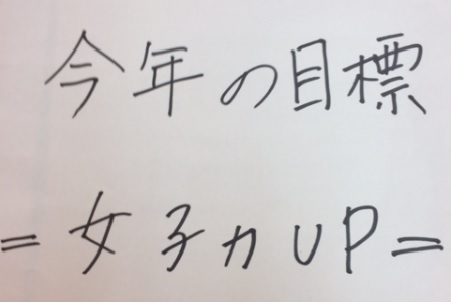 今年の目標
=女子力UP=